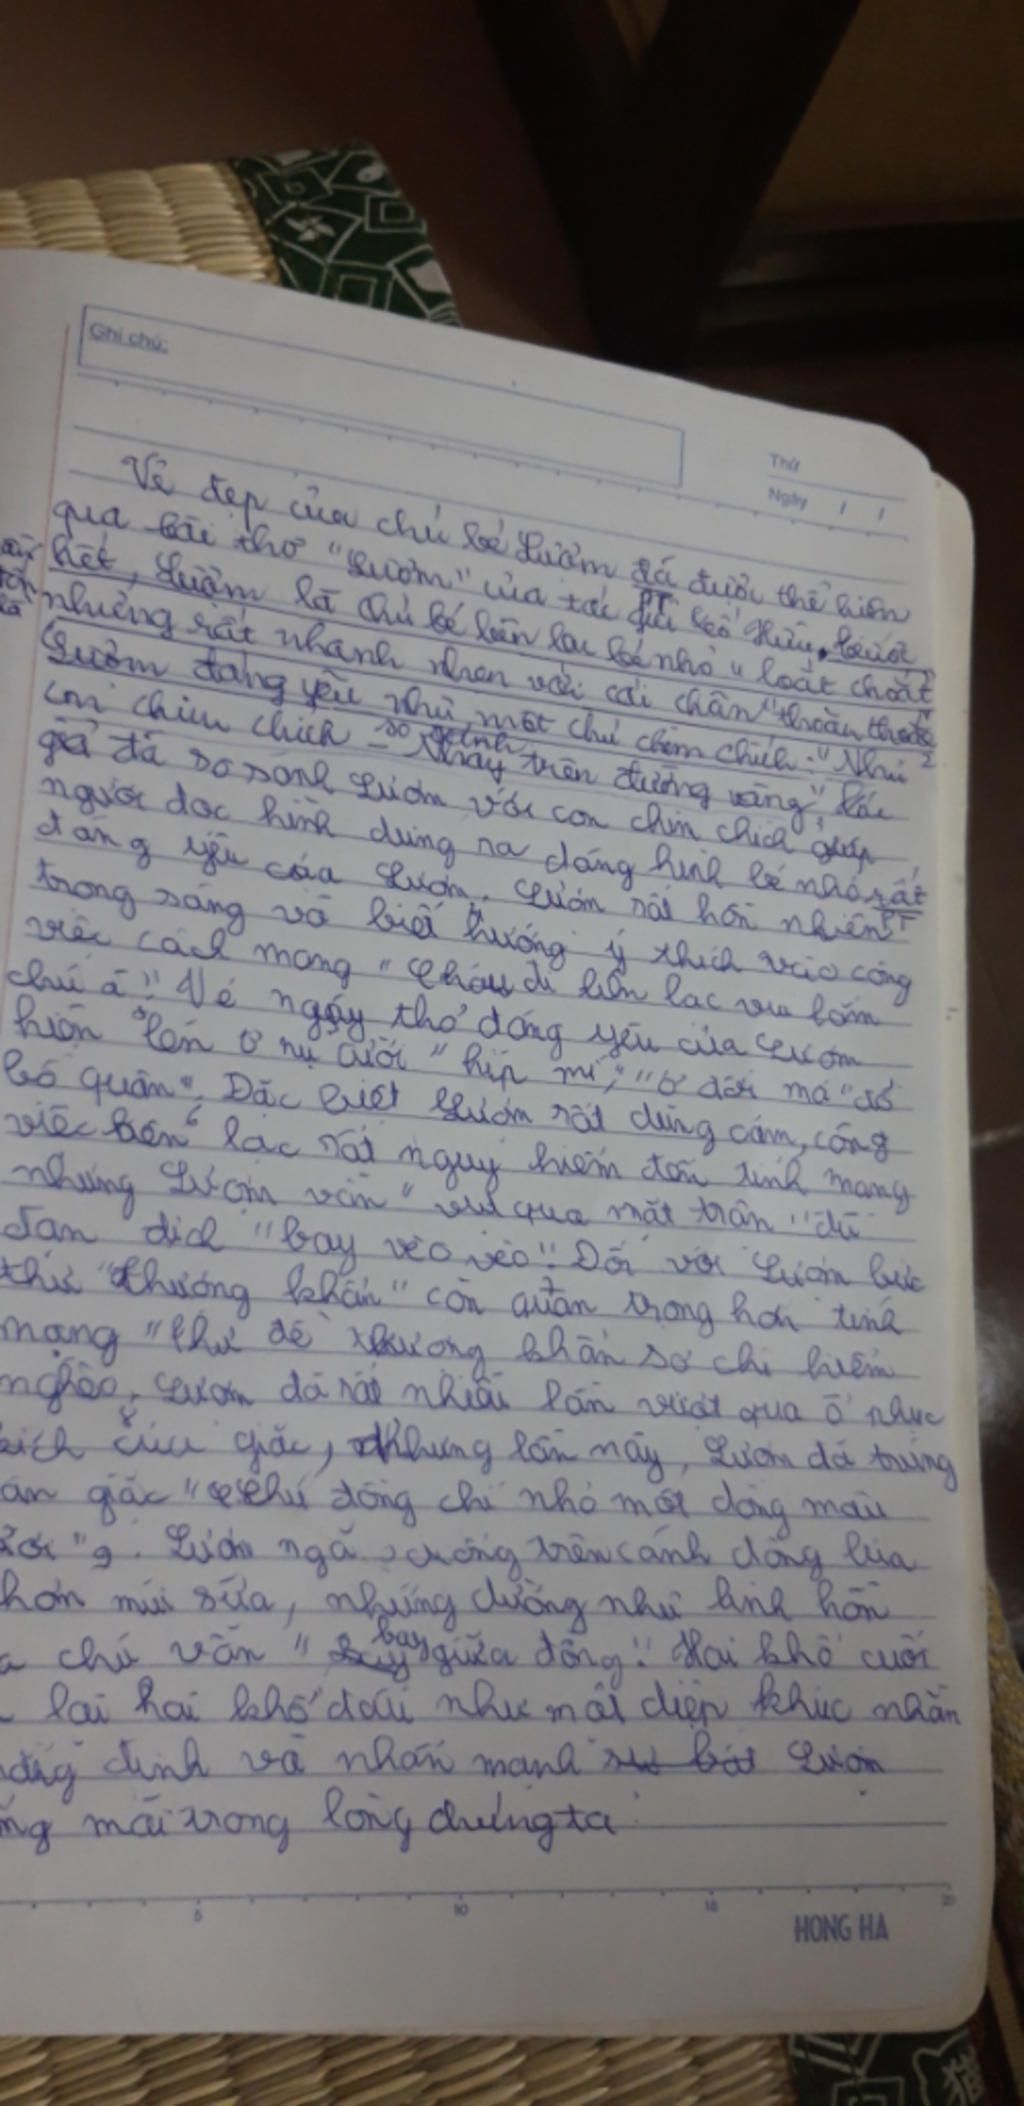 Ghi chú:
Thứ
Ngày / /
Vẻ đẹp của chú bé Lượm đã được thể hiện
qua bài thơ "Lượm" của tác giả Tố Hữu. Trước
hết, Lượm là chú bé liên lạc bé nhỏ "loắt choắt"
nhưng rất nhanh nhẹn với cái chân "thoăn thoắt"
Lượm đáng yêu như một chú chim chích: "Như
con chim chích – Nhảy trên đường vàng", tác
giả đã so sánh Lượm với con chim chích giúp
người đọc hình dung ra dáng hình bé nhỏ rất
đáng yêu của Lượm. Lượm rất hồn nhiên
trong sáng và biết hướng ý thích vào công
việc cách mạng "Cháu đi liên lạc vui lắm
chú à". Vẻ ngây thơ đáng yêu của Lượm
hiện lên ở nụ cười "híp mí", ở đôi má "đỏ
bồ quân". Đặc biệt Lượm rất dũng cảm, công
việc liên lạc rất nguy hiểm đến tính mạng
nhưng Lượm vẫn "vụt qua mặt trận" dù
đạn địch "bay vèo vèo". Đối với Lượm bức
thư "thượng khẩn" còn quan trọng hơn tính
mạng "Thư đề thượng khẩn sợ chi hiểm
nghèo. Lượm đã rất nhiều lần vượt qua ổ phục
kích của giặc, nhưng lần này, Lượm đã trúng
giặc "chú đồng chí nhỏ một dòng máu
". Lượm ngã xuống trên cánh đồng lúa
thơm mùi sữa, nhưng dường như linh hồn
chú vẫn "bay giữa đồng". Hai khổ cuối
lại hai khổ đầu như một điệp khúc nhằm
định và nhấn mạnh Lượm
mãi trong lòng chúng ta.
5 10 15 20
HONG HA